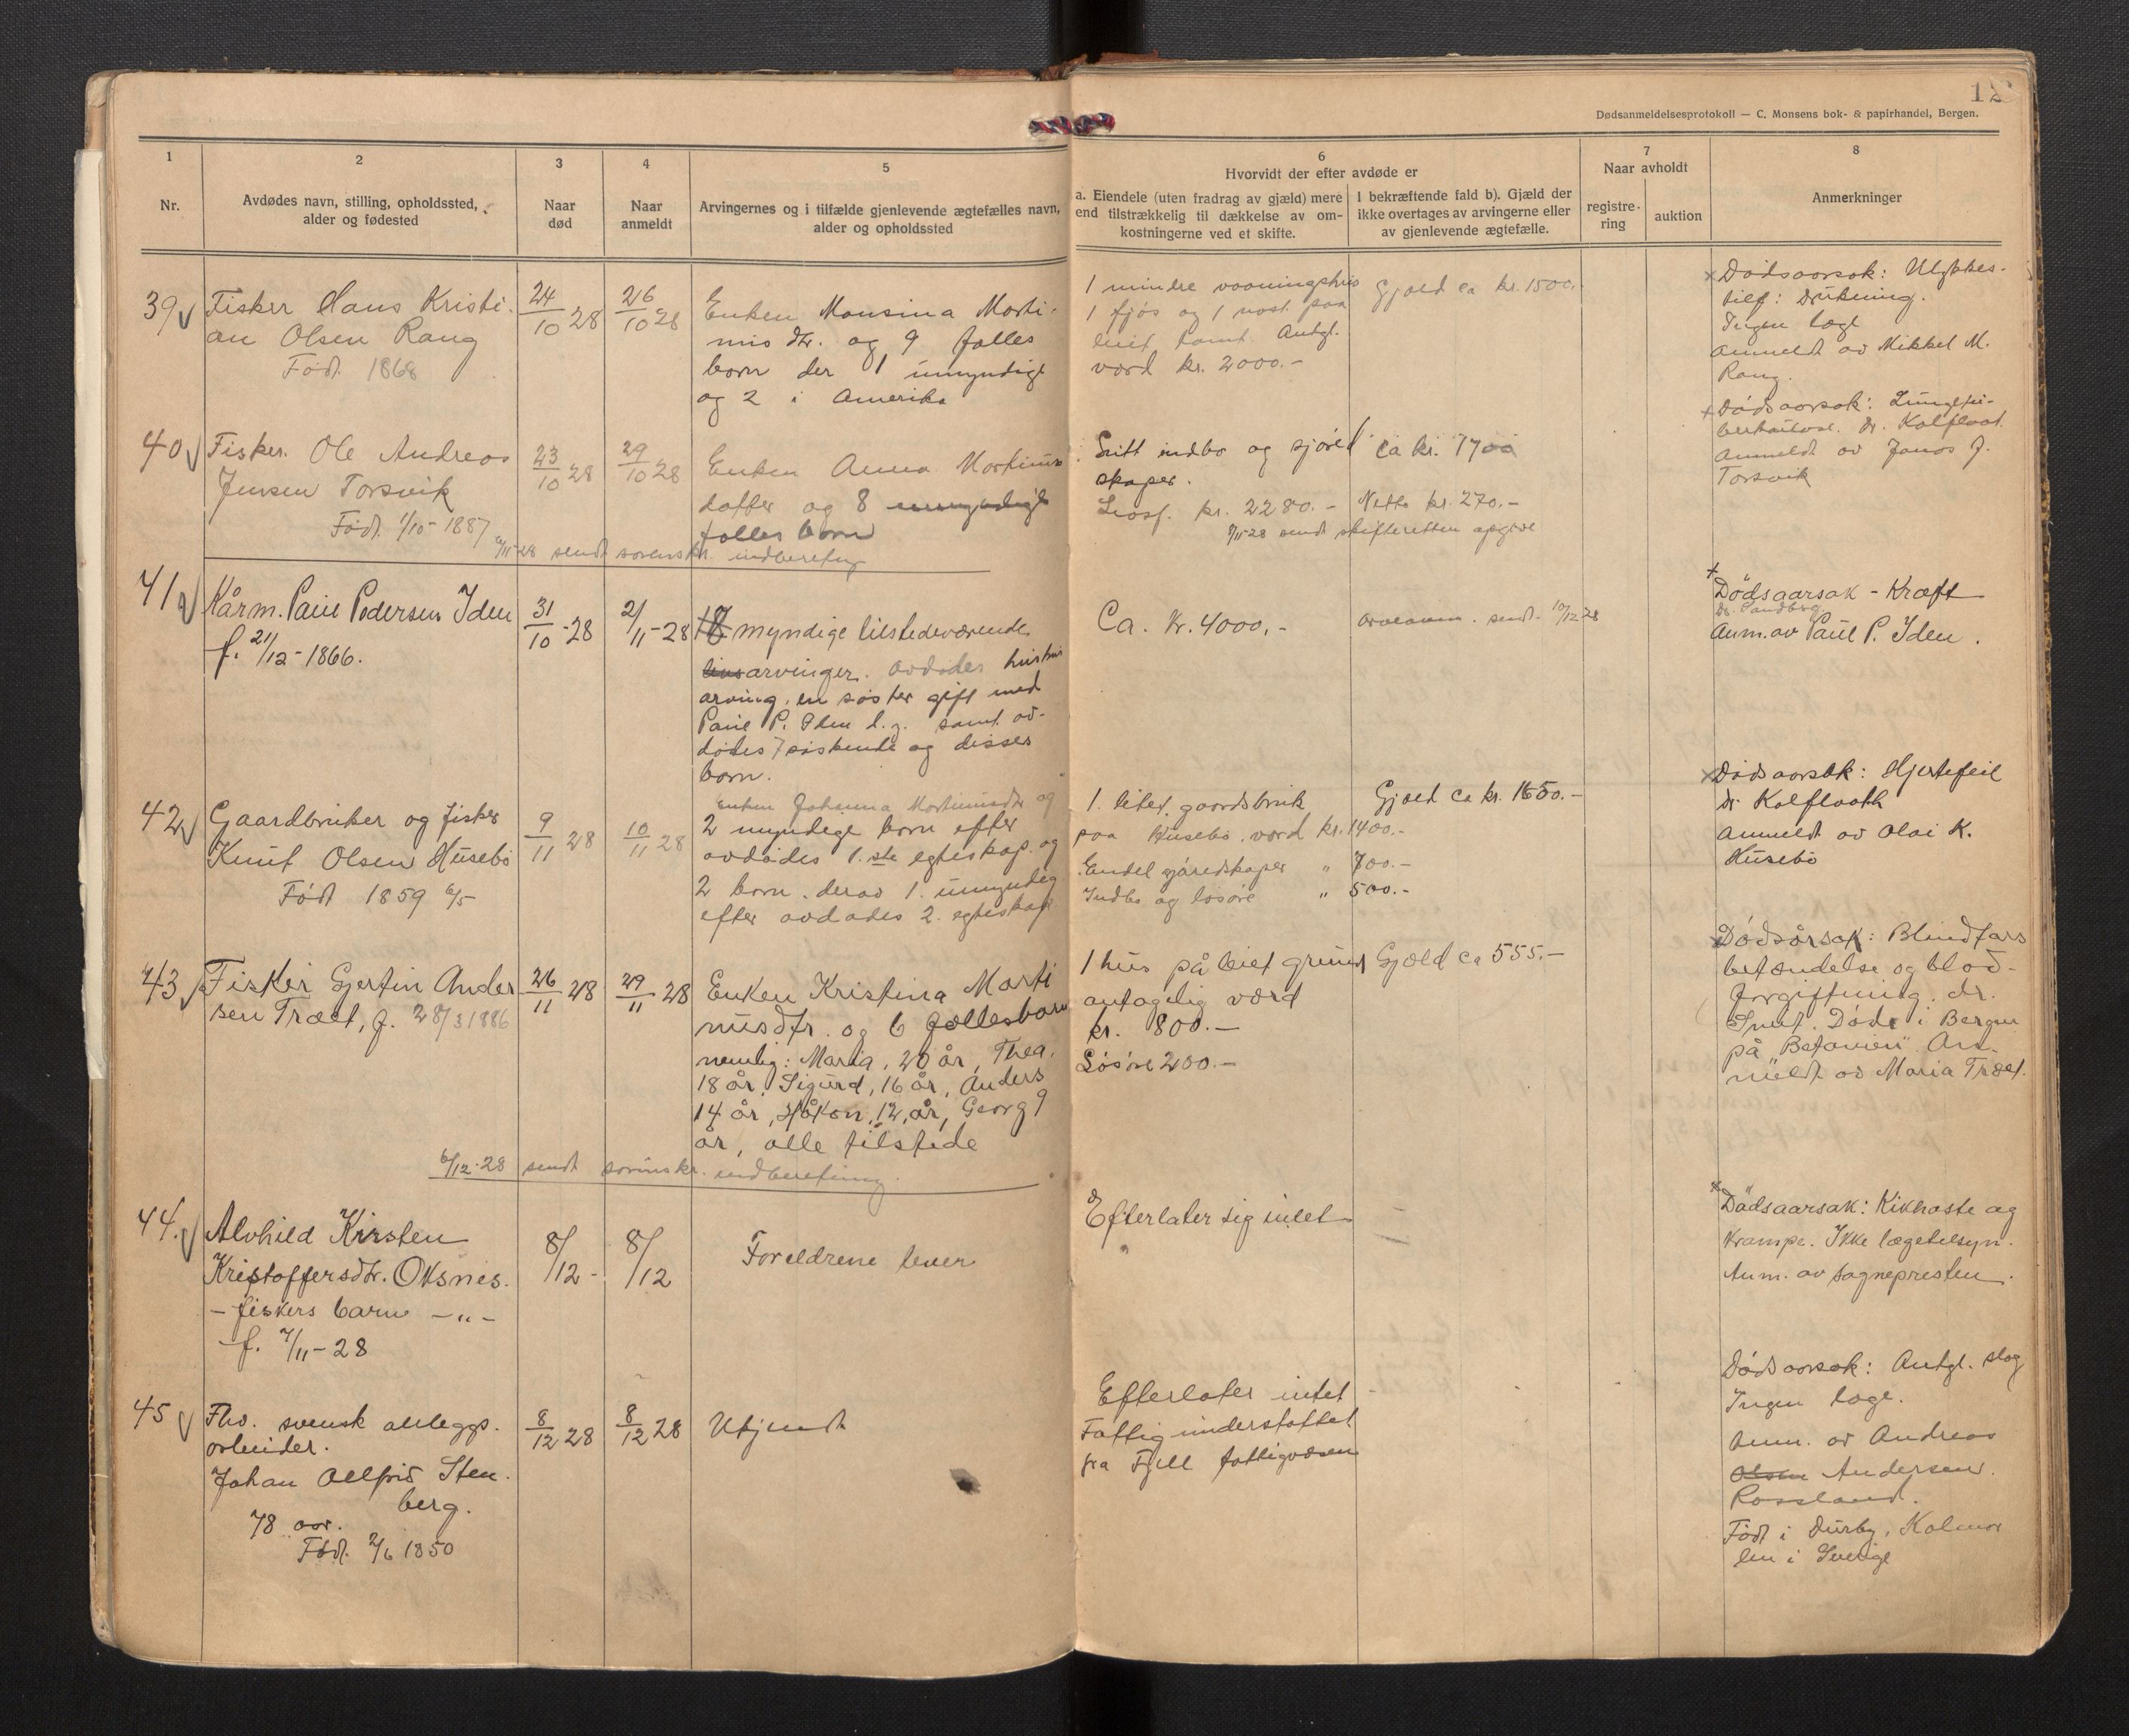 12
Dødsanmeldelsesprotokoll — C. Monsens bok- & papirhandel, Bergen.
1
Nr.
2
Avdødes navn, stilling, opholdssted,
alder og fødested
3
Naar
død
4
Naar
anmeldt
5
Arvingernes og i tilfælde gjenlevende ægtefælles navn,
alder og opholdssted
6
Hvorvidt der efter avdøde er
a. Eiendele (uten fradrag av gjæld) mere
end tilstrækkelig til dækkelse av om-
kostningerne ved et skifte.
I bekræftende fald b). Gjæld der
ikke overtages av arvingerne eller
av gjenlevende ægtefælle.
7
Naar avholdt
registre-
ring
auktion
8
Anmerkninger
39
Fisker Hans Kristi-
an Olsen Rang
Født 1868
24/10 28
26/10 28
Enken Monsina Morti-
nis dtr. og 9 fælles
born der 1 umyndigt
og 2 i Amerika
1 mindre vaaningshus
1 fjøs og 1 nost paa
leiet tomt. Antgl.
værd kr. 2000.-
Gjæld ca kr. 1500.-
Dødsaarsak: Ulykkes-
tilf: Drukning.
Ingen læge
anmeldt av Mikkel M.
Rang.
40
Fisker. Ole Andreas
Jensen Torsvik
Født 1/10-1887
23/10 28
29/10 28
Enken Anna Mortinus
datter og 8 umyndige
fælles born
/11-28 sendt sorenskr. indberetng
Litt indbo og sjøred
skaper.
Løsø. kr. 2280.-
ca kr. 1700
Netto kr. 270.-
/11-28 sendt skifteretten opgave
Dødsaarsak: Lungetu-
berkulose. Dr. Kolflaat.
Anmeldt av Jonas J.
Torsvik
41
Kårm. Paul Pedersen Iden
f. 21/12-1866.
31/10-28
2/11-28
8 myndige tilstedeværende
livsarvinger. Avdødes hustrus
arving, en søster gift med
Paul P. Iden d.y. samt av-
dødes 7 søskende og disses
born.
Ca. Kr. 4000,-
arveanm. sendt 10/12 28
Dödsaarsak - Kræft
Dr. Sandberg
Anm. av Paul P. Iden.
42
Gaardbruker og fisker
Knut Olsen Husebö
Født 1859 6/5
9/11 28
10/11 28
Enken Johanna Mortinusdtr og
2 myndige born efter
avdødes 1.ste egteskap og
2 born. derav 1. umyndig
efter avdødes 2. egteskap
1. litet gaardsbruk
paa Husebø. værd kr. 1400.-
Endel sjøredskaper " 700.-
Indbo og løsøre " 500.-
Gjæld ca kr. 1650.-
Dødsaarsak: Hjertefeil
Dr Kolflaath
Anmeldt av Olai K.
Husebö
43
Fisker Gjertin Ander
sen Træet, f. 28/3 1886
26/11 28
29/11 28
Enken Kristina Marti
nusdtr. og 6 fællesbarn
nemlig: Maria, 20 år, Thea,
18 år, Sigurd, 16 år, Anders
14 år, Håkon, 12 år, Georg 9
år, alle tilstede
6/12-28 sendt sorinskr. indberetning.
1 hus på leiet grund
antagelig værd
kr. 800.-
Løsøre 200.-
Gjæld ca 555.-
Dødsårsak: Blindtars
betændelse og blod-
forgiftning. dr.
Døde i Bergen
på "Betanien". An-
meldt av Maria Træet.
44.
Alvhild Kirsten
Kristoffersdtr. Oksnes.
- fiskers barn - " -
f. 7/11-28
8/12-
8/12
Foreldrene lever
Efterlater sig intet
Dødsaarsak: Kikhoste og
Krampe. Ikke lægetilsyn.
Anm. av sognepresten.
45
Fhv. svensk anleggs-
arbeider.
Johan Alfrid Sten-
berg.
78 aar.
Født 2/6 1850
8/12 28
8/12 28
Ukjendt
Efterlater intet
Fattigunderstøttet
fra Fjell fattigvæsen
Dødsaarsak: Antgl. slag
Ingen læge.
Anm. av Andreas
Olsen Andersen.
Rossland.
Født i Durby, Kalmar
len i Sverige